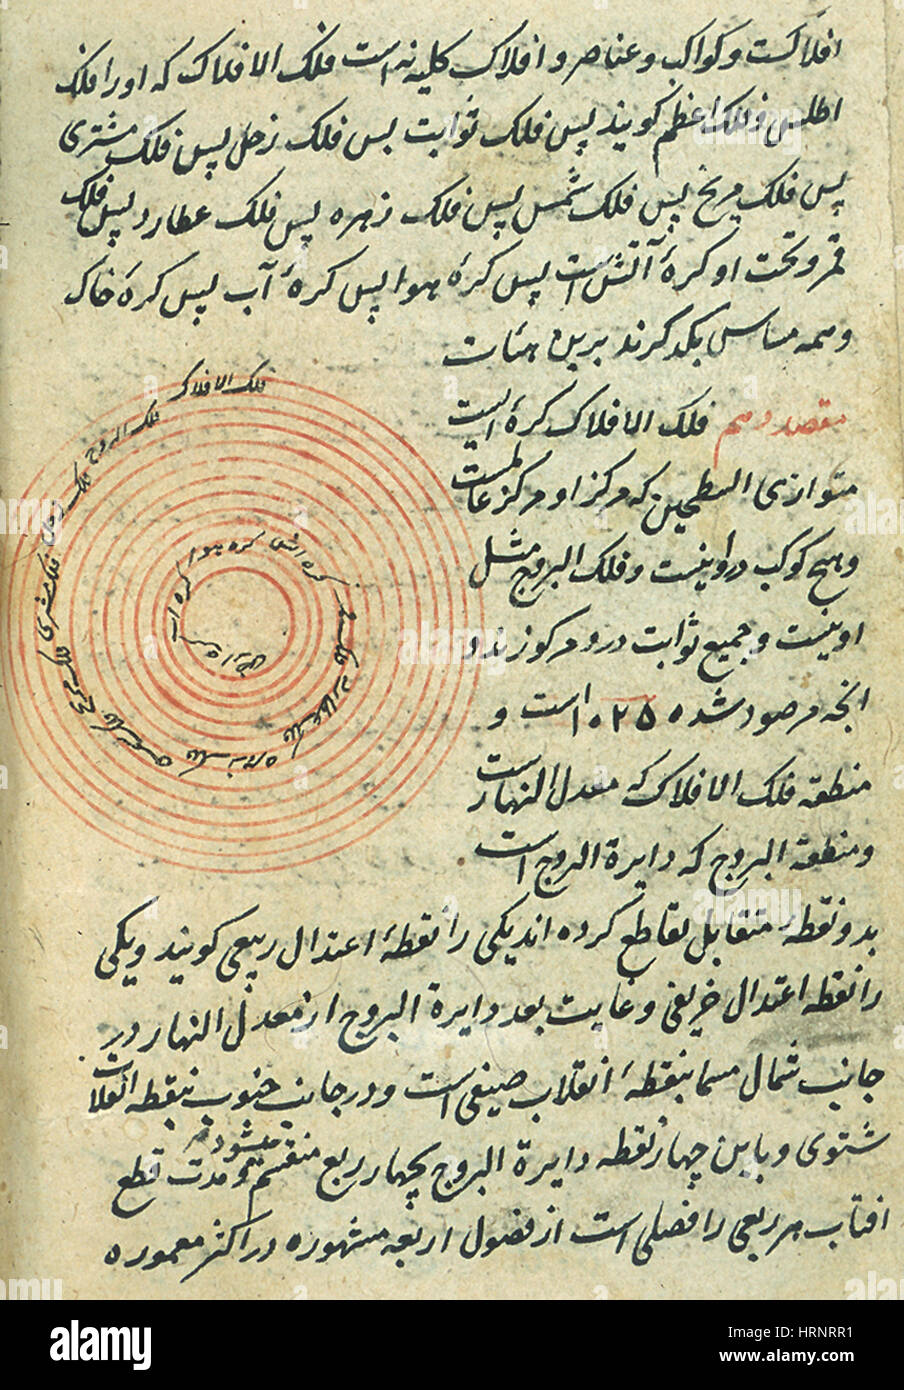 افلاکست و کواکب و عناصر و افلاک کلیه نه است فلک الافلاک که او را فلک
اطلس و فلک اعظم کویند پس فلک ثوابت پس فلک زحل پس فلک مشتری
پس فلک مریخ پس فلک شمس پس فلک زهره پس فلک عطارد پس فلک
قمر و تحت او کرهٔ آتش است پس کرهٔ هوا پس کرهٔ آب پس کرهٔ خاک
و همه مماس یکدیکرند برین هیئات
مقصد دهم فلک الافلاک کرهٔ ایست
متوازی السطحین که مرکز او مرکز عالمست
و هیچ کوکب در او نیست و فلک البروج مثل
اوینست و جمیع ثوابت درو مرکوزند و
انچه مرصود شده ۱۰۲۵ است و
منطقه فلک الافلاک که معدل النهار است
و منطقة البروج که دایرة البروج است
بدو نقطهٔ متقابل تقاطع کرده اند یکی را نقطهٔ اعتدال ربیعی کویند و یکی
را نقطه اعتدال خریفی و غایت بعد دایرة البروج از معدل النهار در
جانب شمال مسما بنقطهٔ انقلاب صیفی است و در جانب جنوب بنقطه انقلاب
شتوی و باین چهار نقطه دایرة البروج بچهار ربع منقسم میشود و مدت قطع
افتاب هر ربعی را فصلی است از فصول اربعه مشهوره در اکثر معموره
فلک الافلاک
فلک البروج
فلک زحل
فلک مشتری
فلک مریخ
فلک شمس
فلک زهره
فلک عطارد
فلک قمر
کره اتش
کره هوا
کره اب
کره ارض
alamy
Image ID: HRNRR1
www.alamy.com